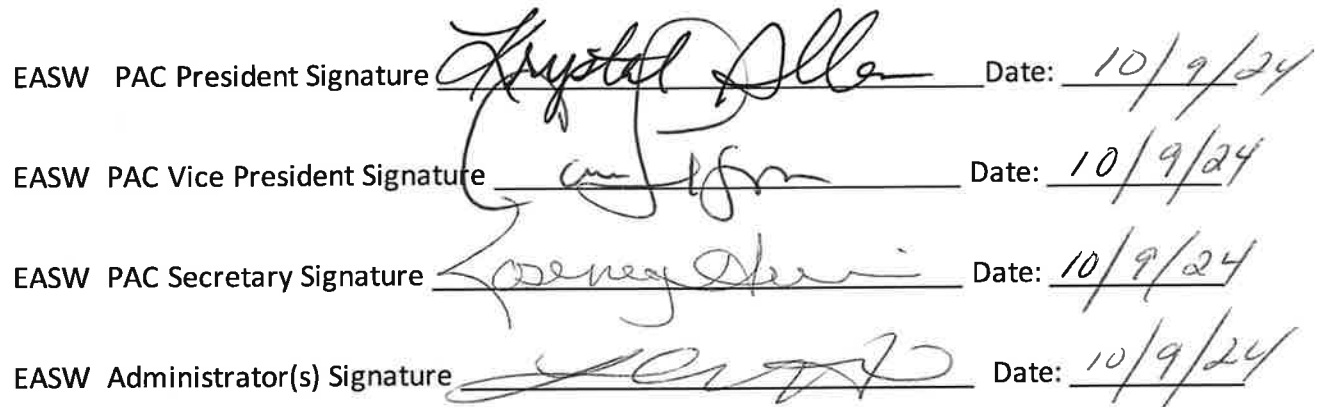 EASW PAC President Signature Krystal Allen Date: 10/9/24
EASW PAC Vice President Signature Date: 10/9/24
EASW PAC Secretary Signature Date: 10/9/24
EASW Administrator(s) Signature Date: 10/9/24